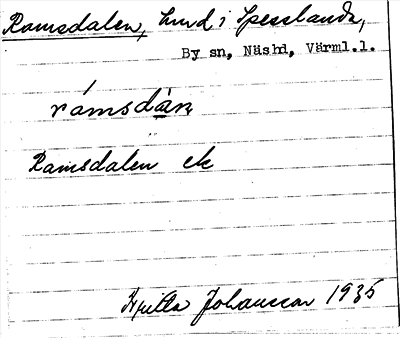 Ramsdalen, hmd i Spesslanda,
By sn, Näshd, Värml.l.
rámsdàn
Ramsdalen ek
Johansson 1935